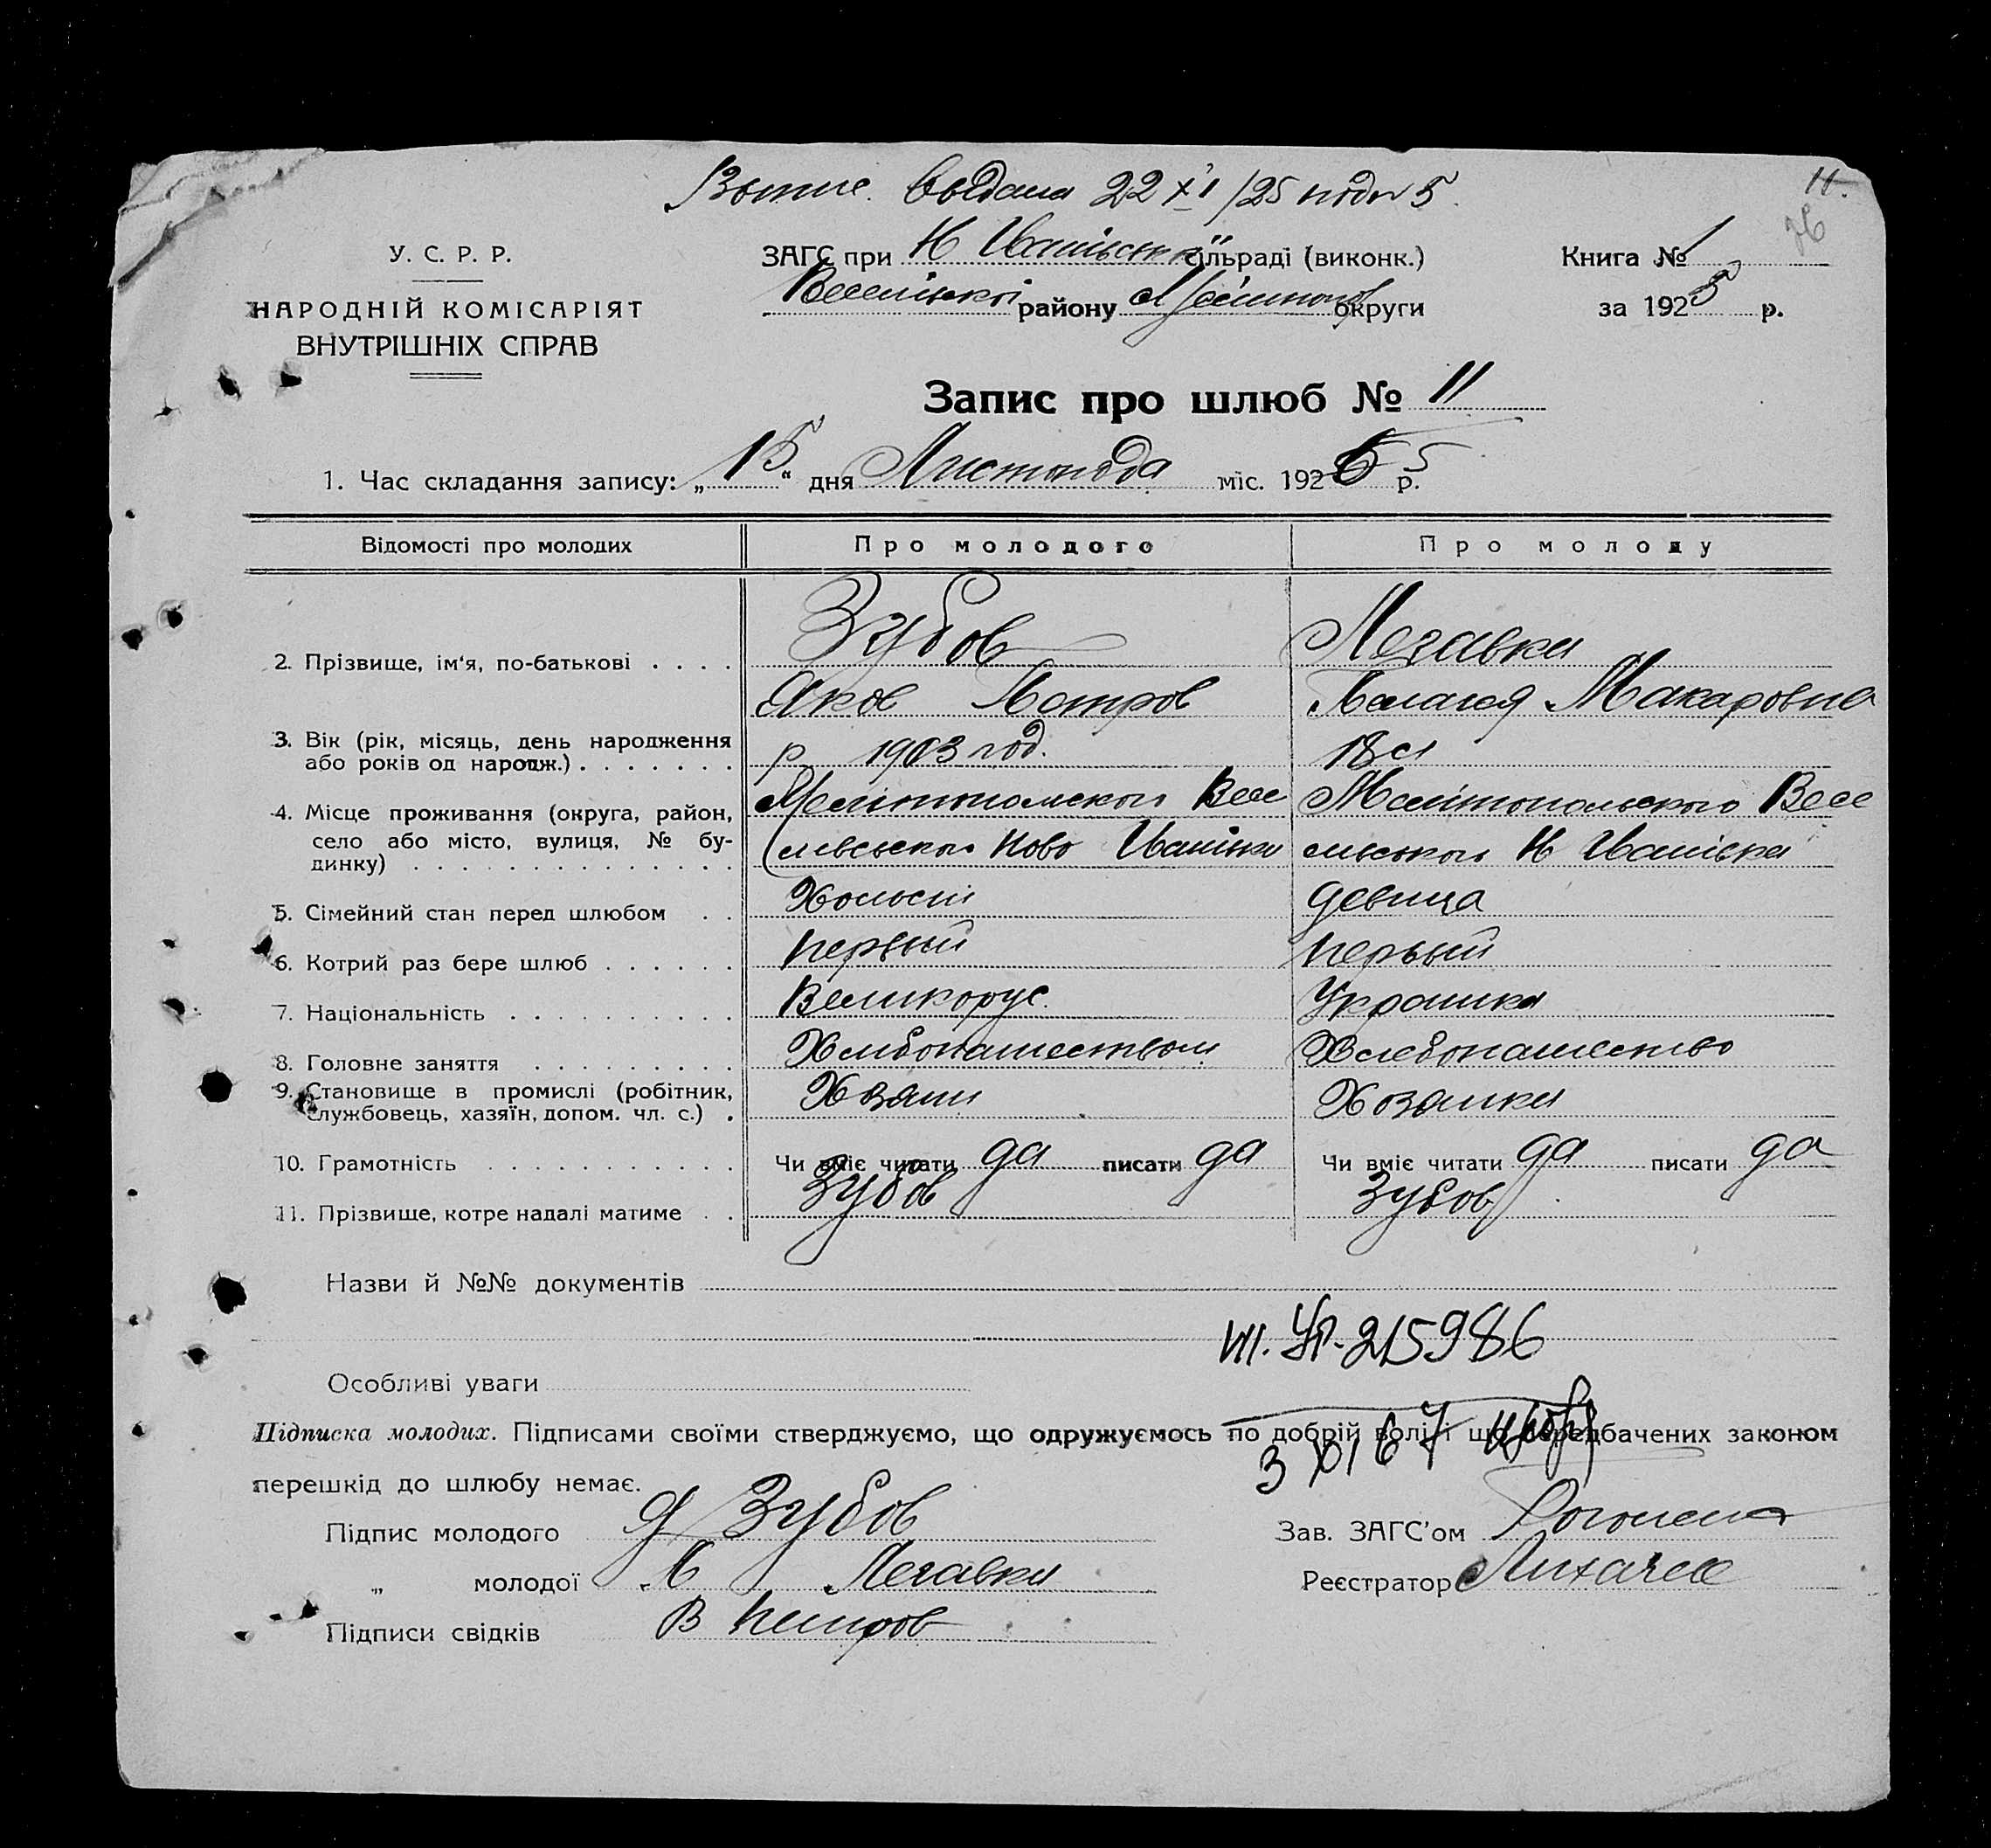 выдана 22 XI/25 под № 5
11.
У. С. Р. Р.
НАРОДНІЙ КОМІСАРІЯТ
ВНУТРІШНІХ СПРАВ
ЗАГС при Н Иванівській сільраді (виконк.)
району округи
Книга № 1
за 1925 р.
Запис про шлюб № 11
1. Час складання запису: „15“ дня Листопада міс. 1925 р.
Відомості про молодих Про молодого Про молоду
2. Прізвище, ім‘я, по-батькові . . . . Зубов
Яков Петров Пелагея Макаровна
3. Вік (рік, місяць, день народження або років од народж.) . . . . . . . р 1903 год. 18
4. Місце проживання (округа, район, Мелітопольского Весе Мелітопольского Весе
село або місто, вулиця, № бу- Ново Иванівки Н Иванівка
динку) . . . . . . . . . . . . . .
5. Сімейний стан перед шлюбом . . Холост девица
6. Котрий раз бере шлюб . . . . . . первый первый
7. Національність . . . . . . . . . . Великорус. Украинка
8. Головне заняття . . . . . . . . . Хлебопашество
9. Становище в промислі (робітник, службовець, хазяїн, допом. чл. с.) . Хозяин Хозяйка
10. Грамотність . . . . . . . . . . . Чи вміє читати да писати да Чи вміє читати да писати да
11. Прізвище, котре надалі матиме . . Зубов Зубов
Назви й №№ документів
215986
Особливі уваги
Підписка молодих. Підписами своїми стверджуємо, що одружуємось по добрій волі і що передбачених законом
3 XI 67
перешкід до шлюбу немає.
Підпис молодого Я Зубов
Зав. ЗАГС’ом
„ молодої
Реєстратор Лихачев
Підписи свідків В Петров